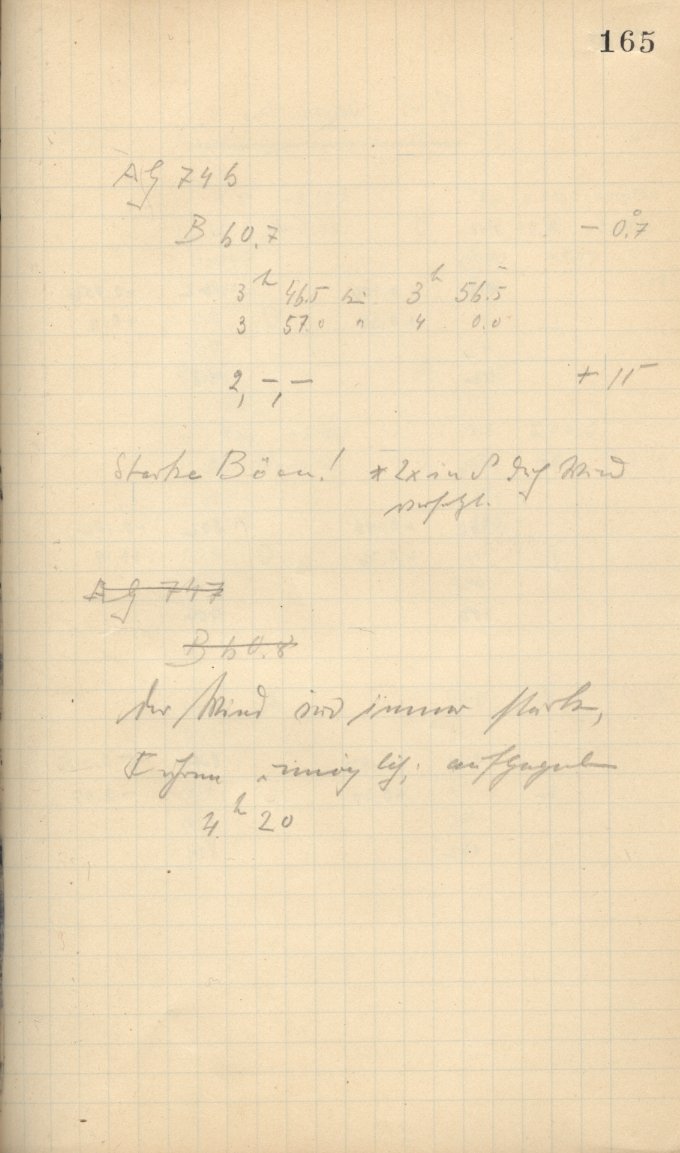 165
AG 746
B 60.7 − 0°.7
3h 46.5 bis 3h 56.5
3 57.0 " 4 0.0
2, −, − + 11
Starke Böen! * 2x in δ durch Wind
versetzt.
AG 747
B 60.8
der Wind wird immer stärker,
Führen unmöglich; aufgegeben
4h 20